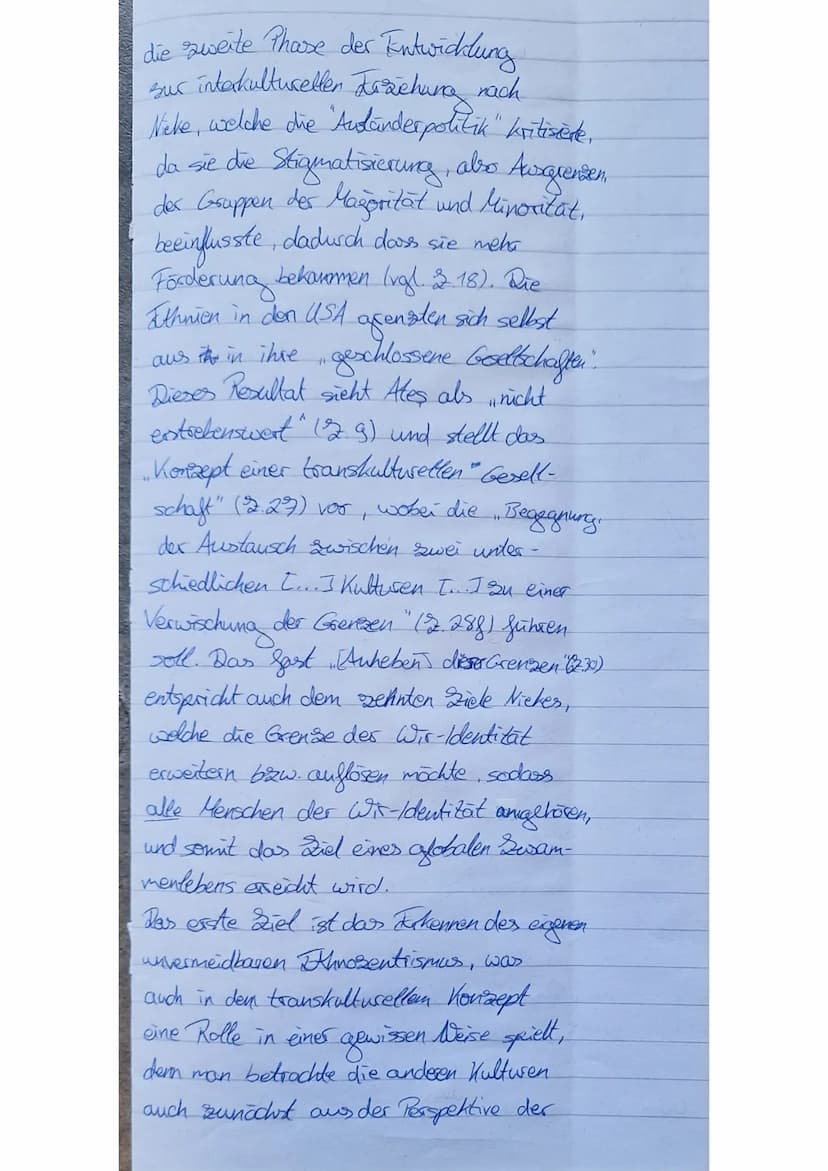 die zweite Phase der Entwicklung
zur interkulturellen Erziehung nach
Nieke, welche die "Ausländerpolitik" kritisierte,
da sie die Stigmatisierung, also Ausgrenzen,
der Gruppen der Majorität und Minorität,
beeinflusste, dadurch dass sie mehr
Förderung bekammen (vgl. Z 18). Die
Ethnien in den USA grenzten sich selbst
aus in ihre „geschlossene Gesellschaften".
Dieses Resultat sieht Ateş als „nicht
erstrebenswert" (Z 9) und stellt das
„Konzept einer transkulturellen Gesell-
schaft" (Z.27) vor, wobei die „Begegnung,
der Austausch zwischen zwei unter-
schiedlichen [...] Kulturen [...] zu einer
Verwischung der Grenzen" (Z.28f) führen
soll. Das fast „[Auheben] dieser Grenzen" (Z.30)
entspricht auch dem zehnten Ziele Niekes,
welche die Grenze der Wir-Identität
erweitern bzw. auflösen möchte, sodass
alle Menschen der Wir-Identität angehören,
und somit das Ziel eines globalen Zusam-
menlebens erreicht wird.
Das erste Ziel ist das Erkennen des eigenen
unvermeidbaren Ethnozentrismus, was
auch in dem transkulturellem Konzept
eine Rolle in einer gewissen Weise spielt,
denn man betrachte die anderen Kulturen
auch zunächst aus der Perspektive der